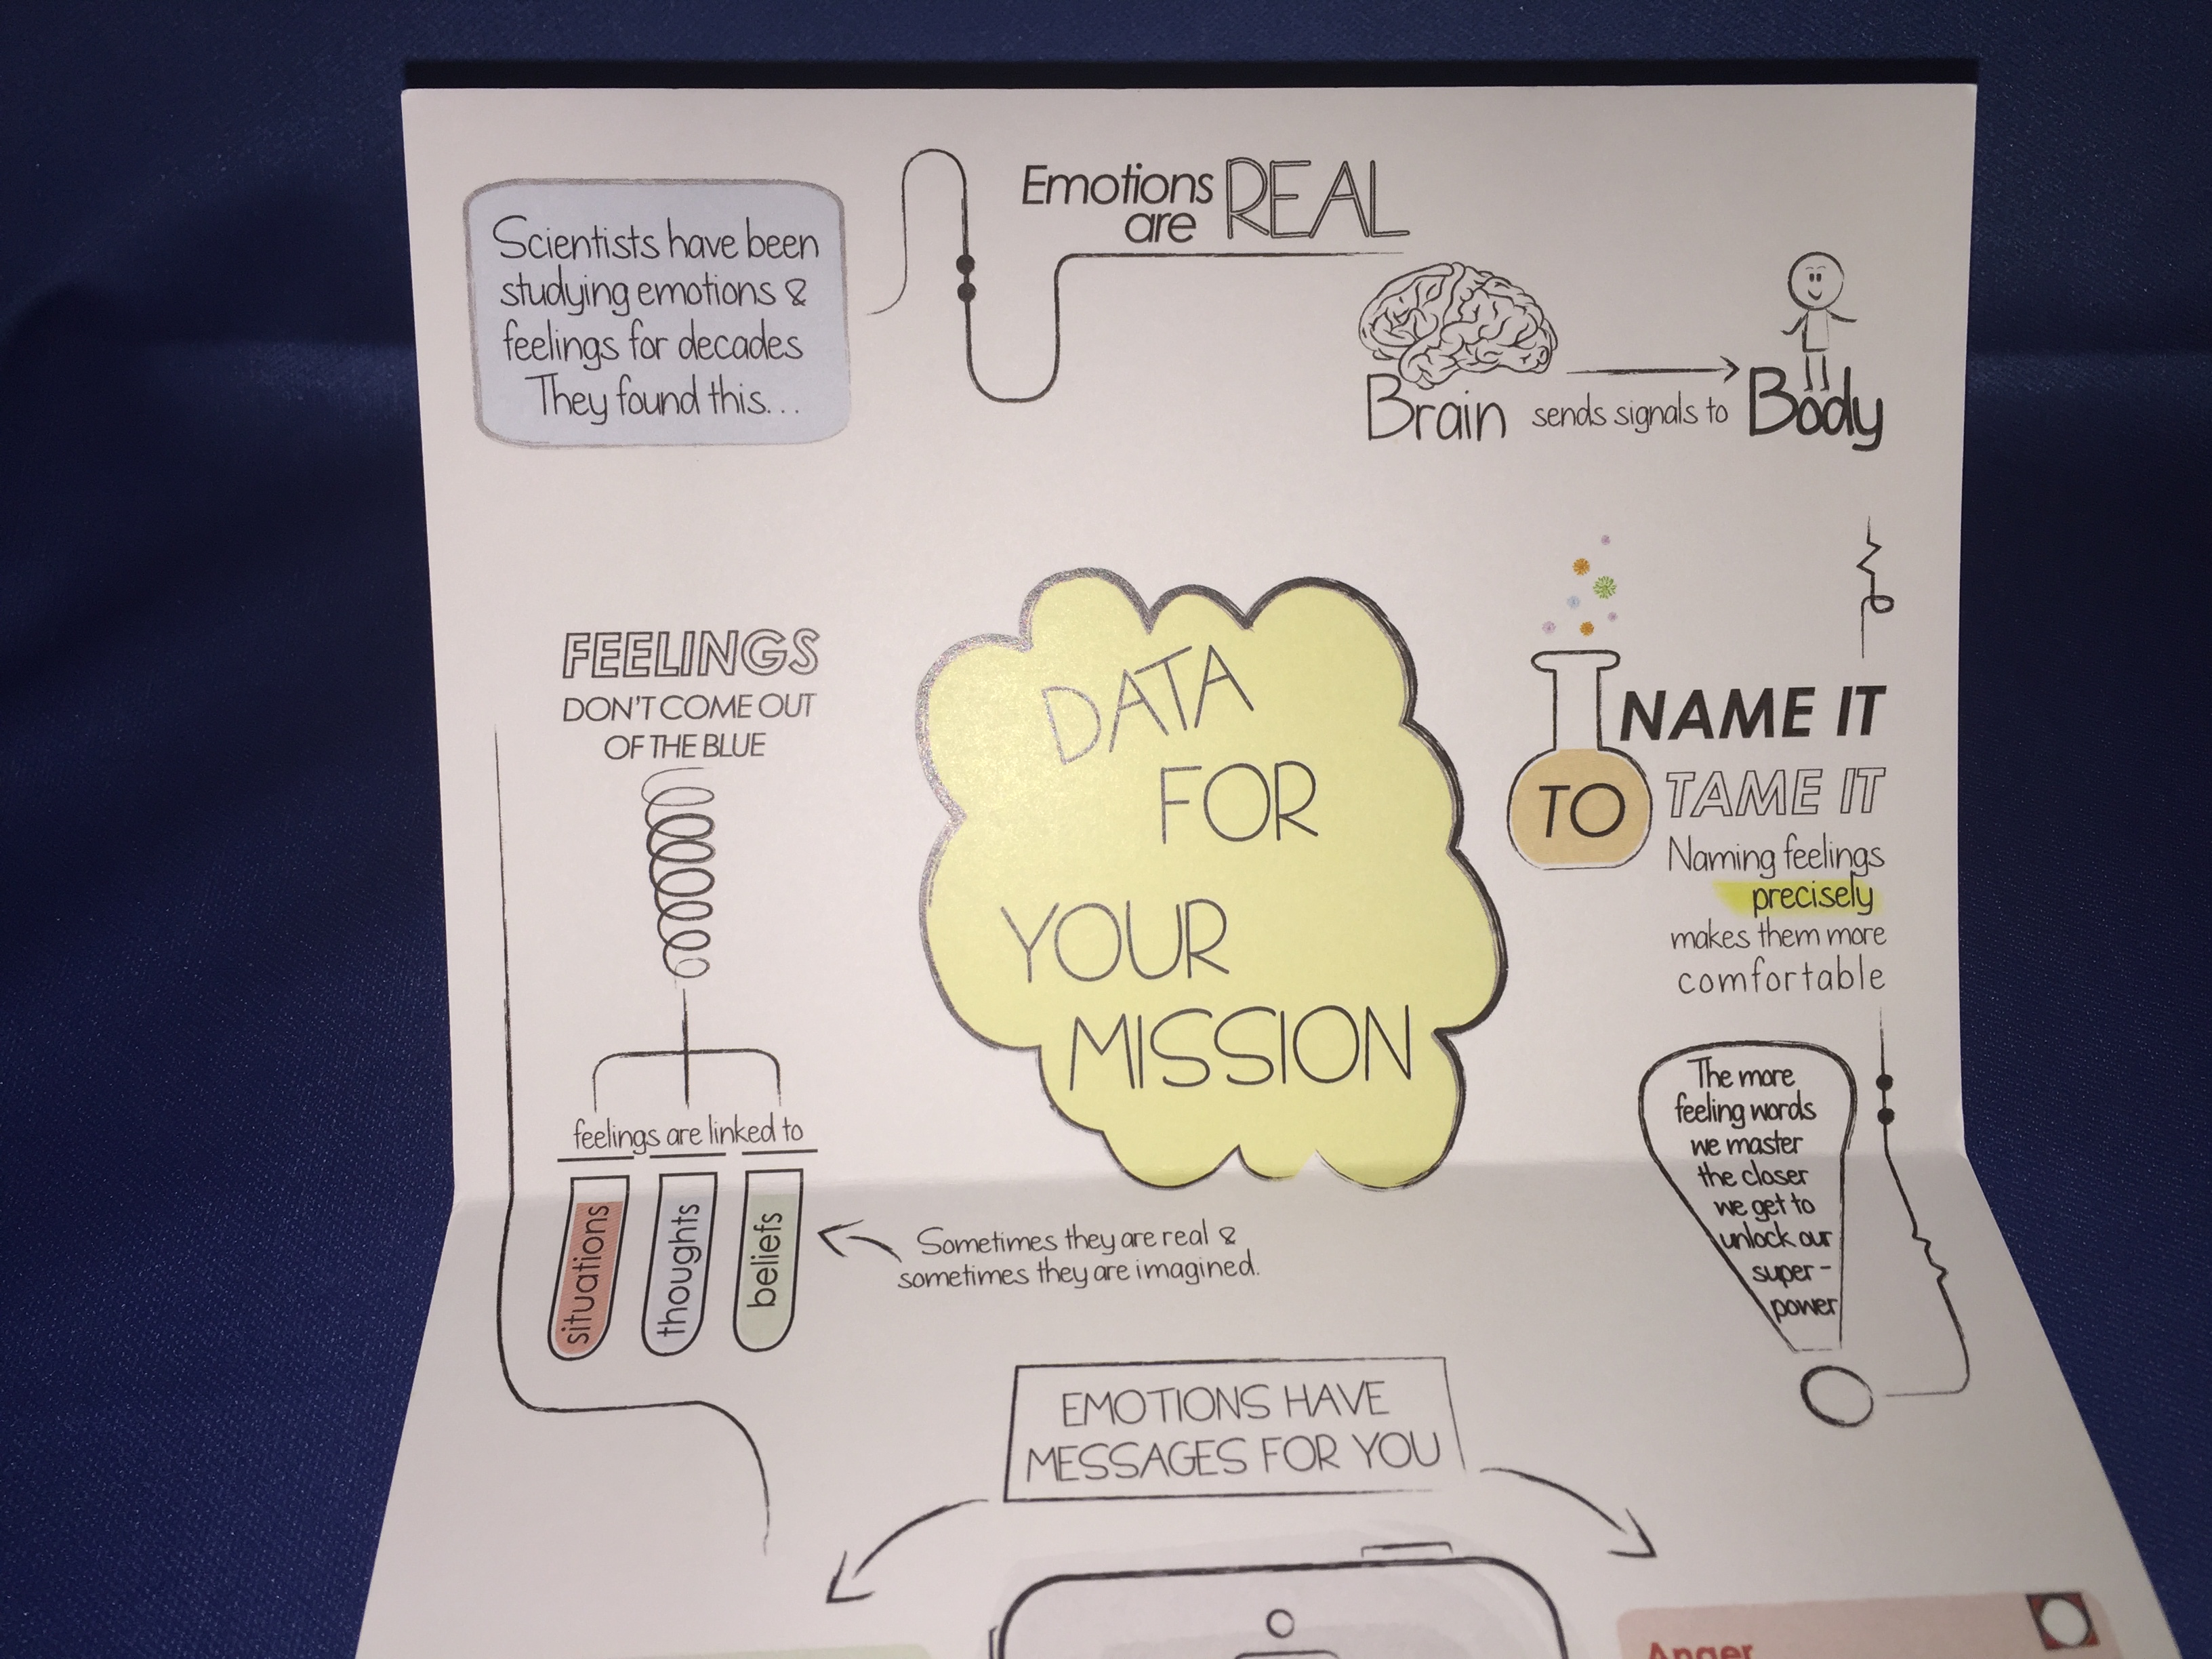 Scientists have been
studying emotions &
feelings for decades
They found this...
Emotions
are REAL
Brain sends signals to Body
FEELINGS
DON'T COME OUT
OF THE BLUE
feelings are linked to
situations
thoughts
beliefs
Sometimes they are real &
sometimes they are imagined.
DATA
FOR
YOUR
MISSION
NAME IT
TO TAME IT
Naming feelings
precisely
makes them more
comfortable
The more
feeling words
we master
the closer
we get to
unlock our
super-
power
EMOTIONS HAVE
MESSAGES FOR YOU
Anger